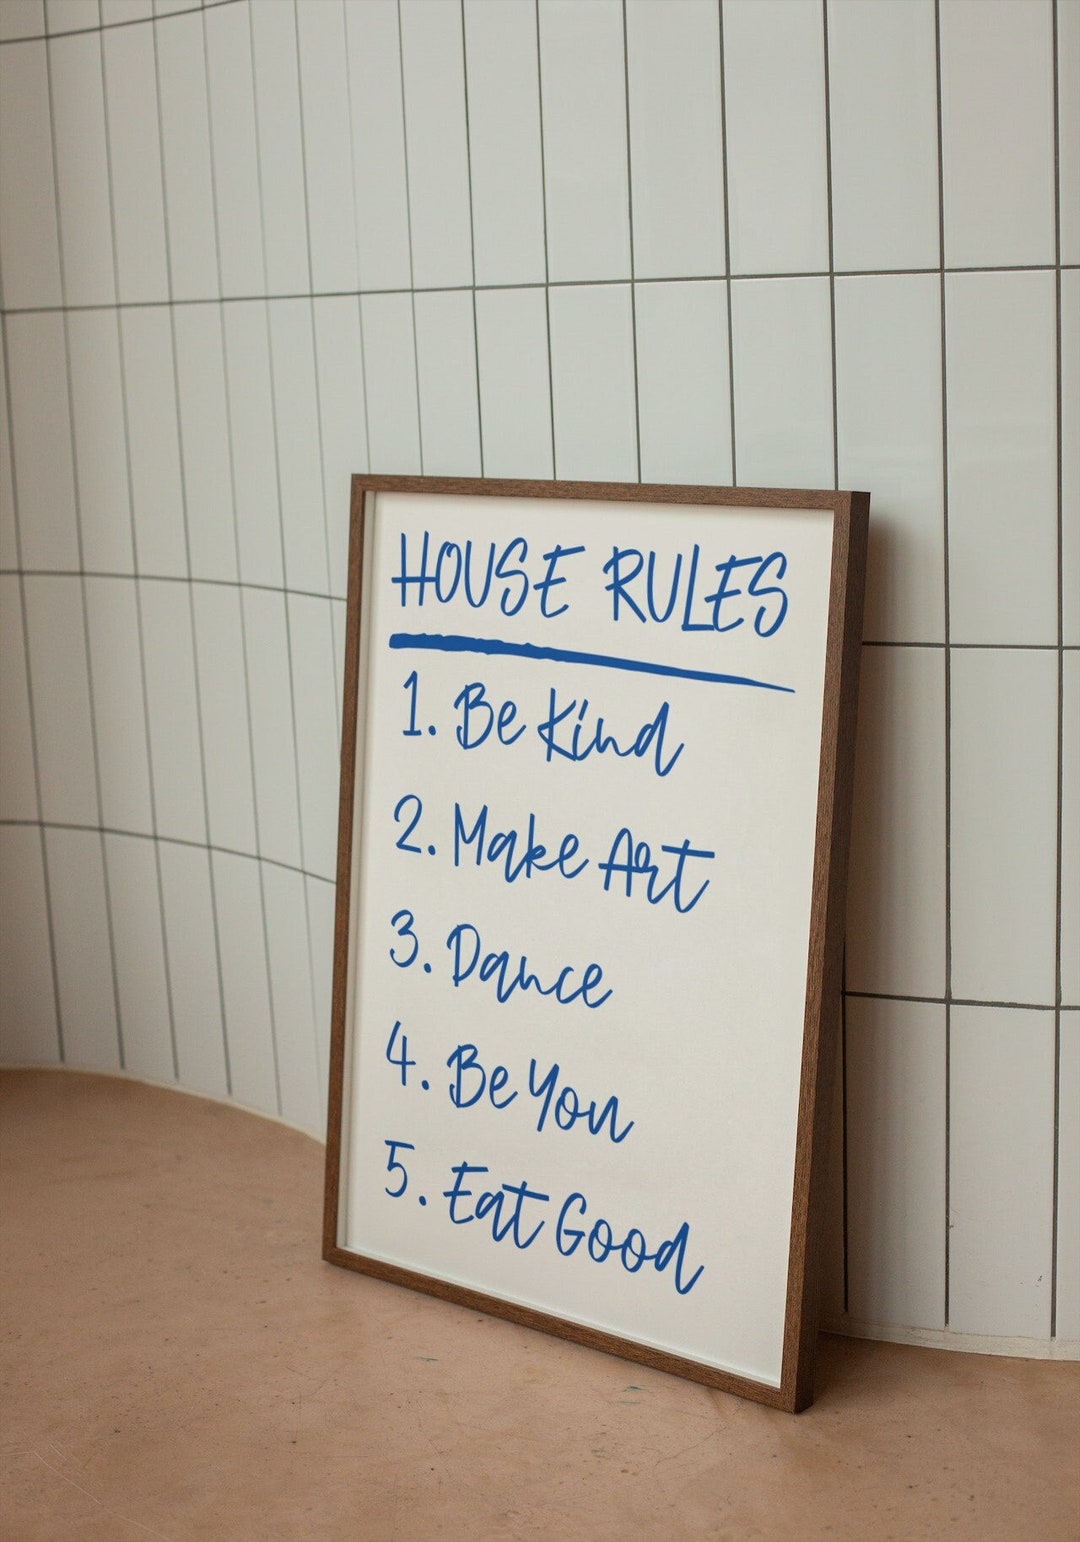 HOUSE RULES
1. Be Kind
2. Make Art
3. Dance
4. Be You
5. Eat Good